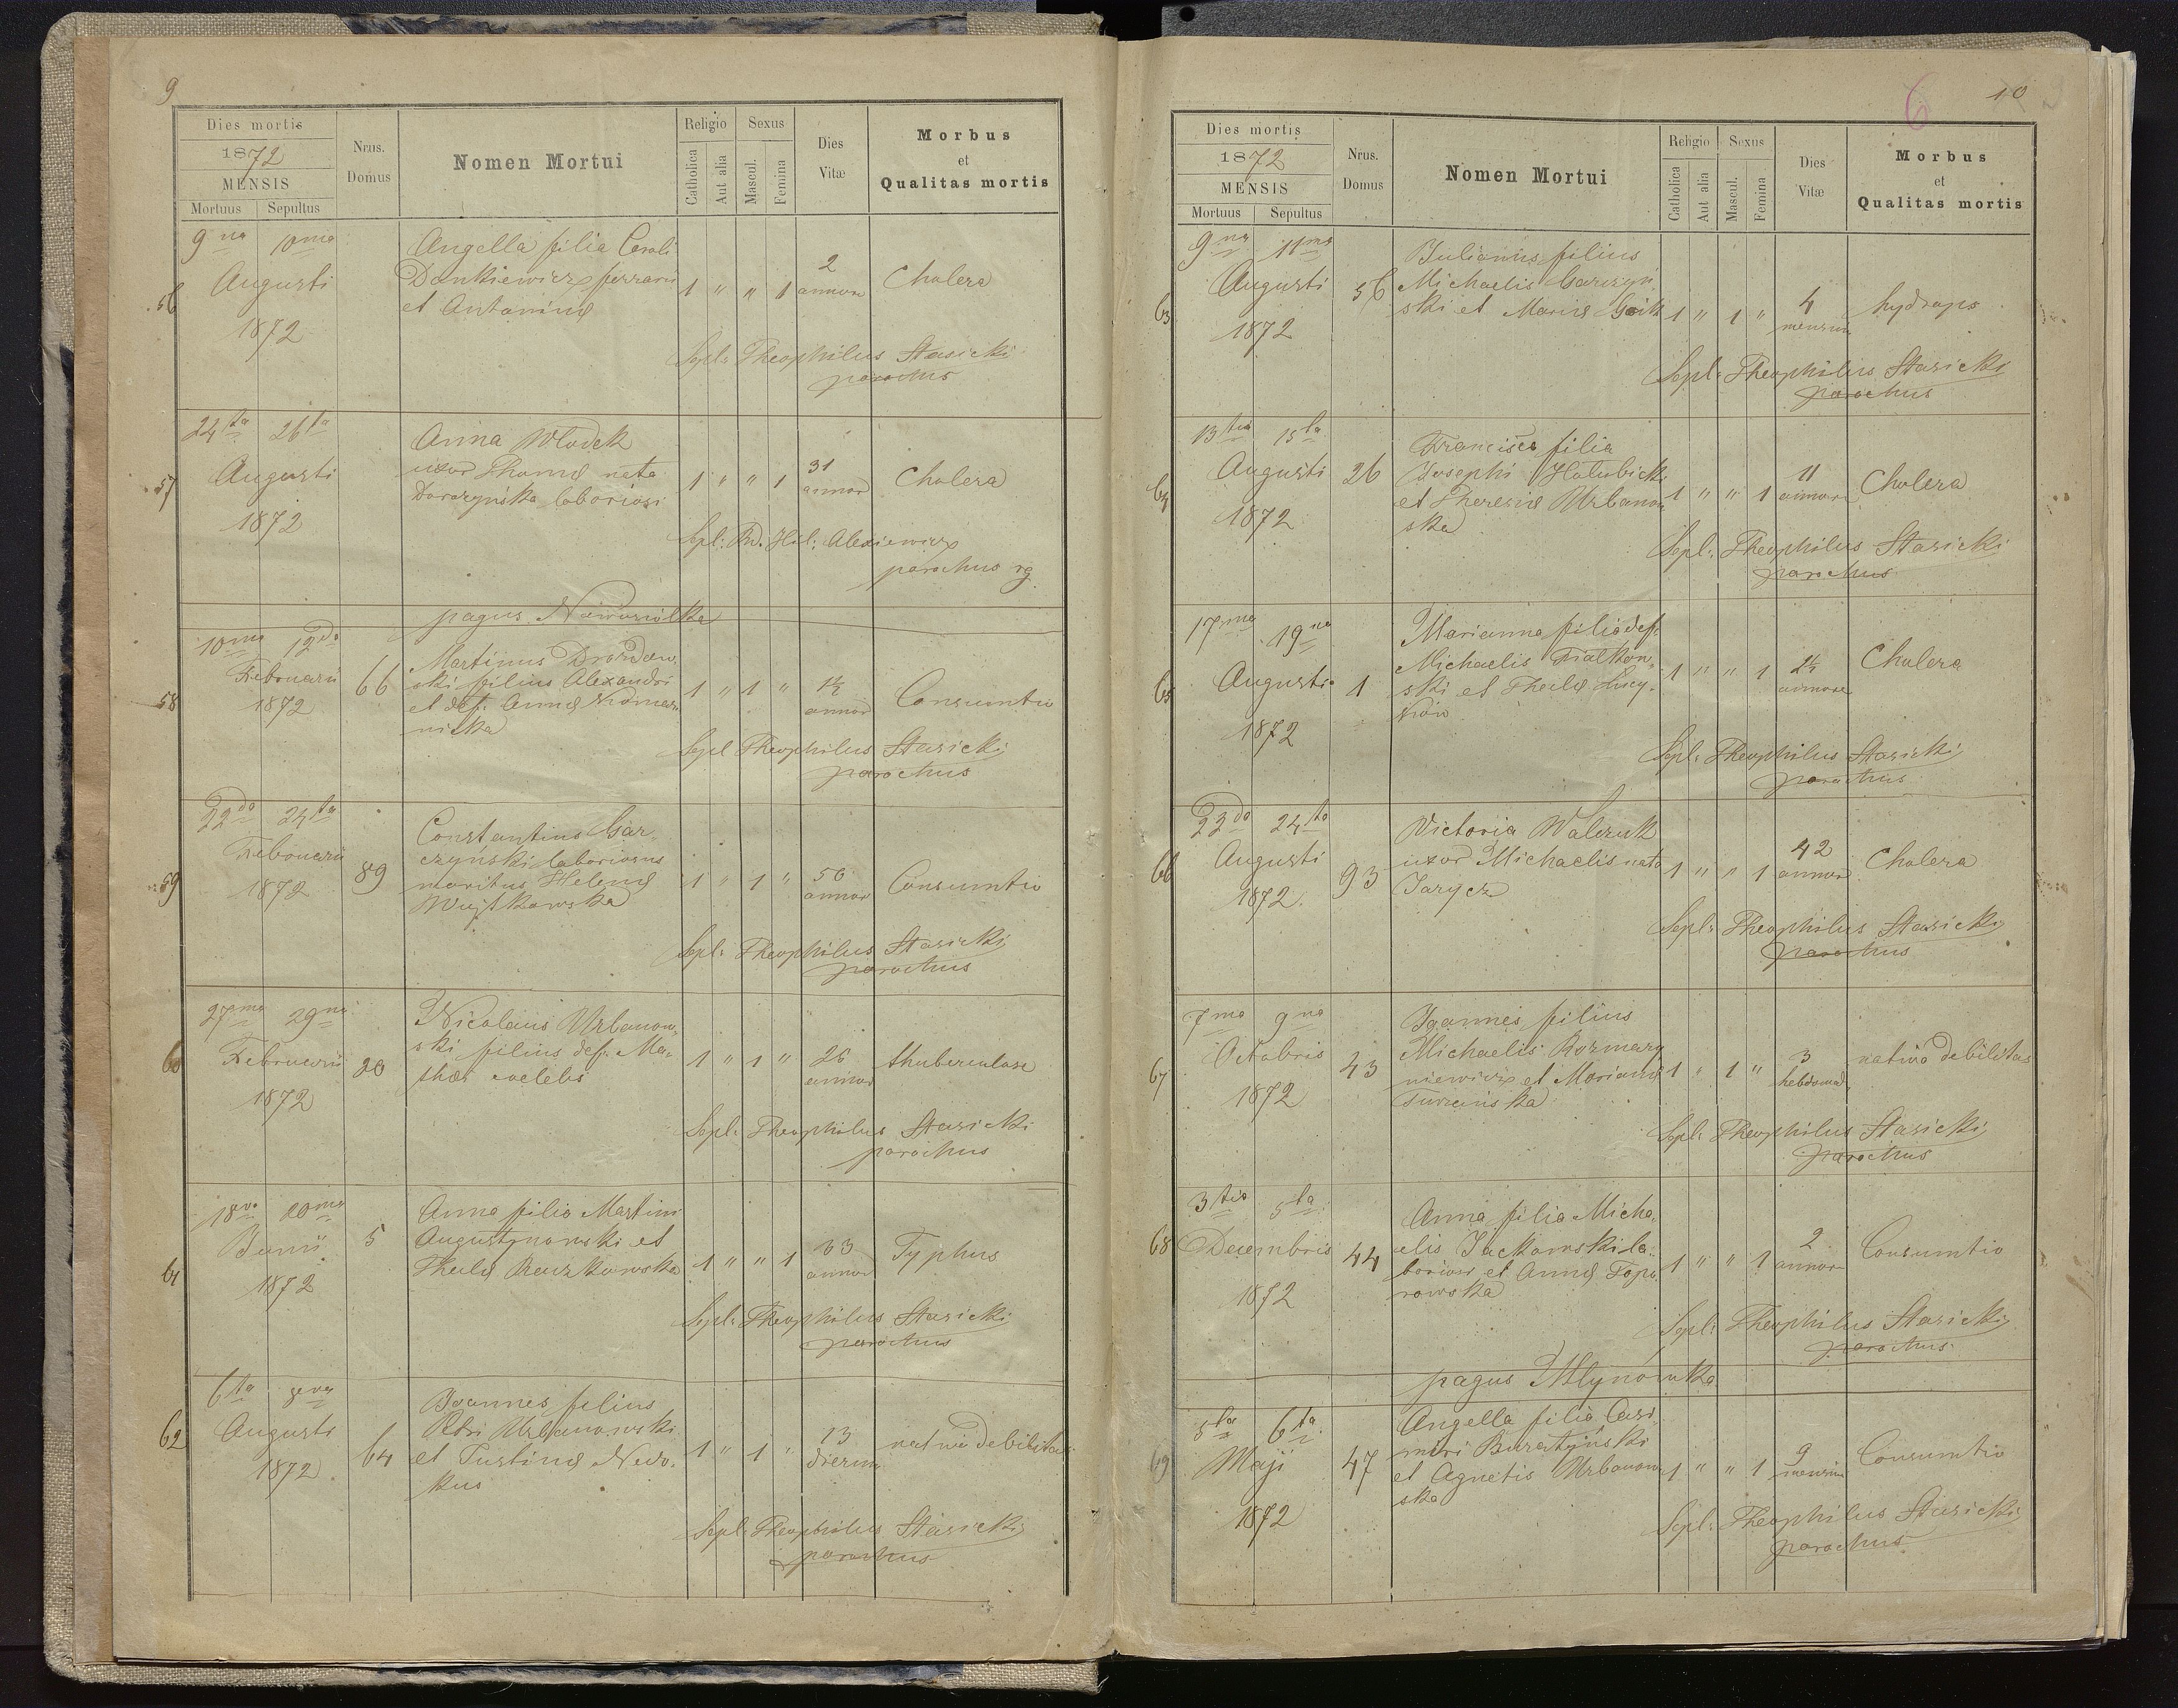 9
Dies mortis
1872
MENSIS
Mortuus Sepultus
Nrus. Domus
Nomen Mortui
Religio
Catholica
Aut alia
Sexus
Mascul.
Femina
Dies Vitæ
Morbus
et
Qualitas mortis
56
9na 10ma
Augusti
1872
Angella filia Caroli
Dankiewicz ferrarii
et Antoninæ
1 " " 1
2
annor
Cholera
Sepl: Theophilus Stasicki
parochus
57
24ta 26ta
Augusti
1872
Anna Wlodek
uxor Thomæ nata
Doroczynska laboriosi
1 " " 1
31
annor
Cholera
Sepl: Rd. Hil: Alexiewicz
parochus rg
pagus Nowosiolka
58
10ma 12da
Februarii
1872
66
Martinus Drozdow
ski filius Alexandri
et def. Annæ
niska
1 " 1 "
1½
annor
Consumtio
Sepl Theophilus Stasicki
parochus
59
22da 24ta
Februarii
1872
89
Constantinus Gar
czyński laboriosus
maritus Helenæ
Wujtkowska
1 " 1 "
56
annor
Consumtio
Sepl: Theophilus Stasicki
parochus
60
27ma 29na
Februarii
1872
20
Nicolaus Urbanow
ski filius def. Ma
thæi coelebs
1 " 1 "
26
annor
thuberculose
Sepl: Theophilus Stasicki
parochus
61
18va 20ma
Junii
1872
5
Anna filia Martini
Augustynowski et
Theclæ Raczkowska
1 " " 1
33
annor
Typhus
Sepl: Theophilus Stasicki
parochus
62
6ta 8va
Augusti
1872
64
Joannes filius
Petri Urbanowski
et Justinæ Niedo
kus
1 " 1 "
13
dierum
nativa debilitas
Sepl: Theophilus Stasicki
parochus
6
10
Dies mortis
1872
MENSIS
Mortuus Sepultus
Nrus. Domus
Nomen Mortui
Religio
Catholica
Aut alia
Sexus
Mascul.
Femina
Dies Vitæ
Morbus
et
Qualitas mortis
63
9na 11ma
Augusti
1872
56
Julianus filius
Michaelis Garczyń
ski et Mariæ Goik
1 " 1 "
4
mensium
hydrops
Sepl: Theophilus Stasicki
parochus
64
13tia 15ta
Augusti
1872
26
Francisca filia
Josephi Holubicki
et Theresiæ Urbanow
ska
1 " " 1
11
annor
Cholera
Sepl: Theophilus Stasicki
parochus
65
17ma 19na
Augusti
1872
1
Marianna filia def.
Michaelis Fialkow
ski et Theclæ
1 " " 1
2½
annor
Cholera
Sepl: Theophilus Stasicki
parochus
66
23da 24ta
Augusti
1872
93
Victoria Walczuk
uxor Michaelis nata
Jarycz
1 " " 1
42
annor
Cholera
Sepl: Theophilus Stasicki
parochus
67
7ma 9na
Octobris
1872
43
Joannes filius
Michaelis Rozmary
niewicz et Mariannæ
Turzańska
1 " 1 "
3
hebdomad.
nativa debilitas
Sepl: Theophilus Stasicki
parochus
68
3tia 5ta
Decembris
1872
44
Anna filia Micha
elis Jackowski la
boriosi et Annæ Topo
rowska
1 " " 1
2
annor
Consumtio
Sepl: Theophilus Stasicki
parochus
pagus Mlynówka
69
5ta 6ta
Maji
1872
47
Angella filia Casi
miri Buratyński
et Agnetis Urbanow
ska
1 " " 1
9
mensium
Consumtio
Sepl: Theophilus Stasicki
parochus